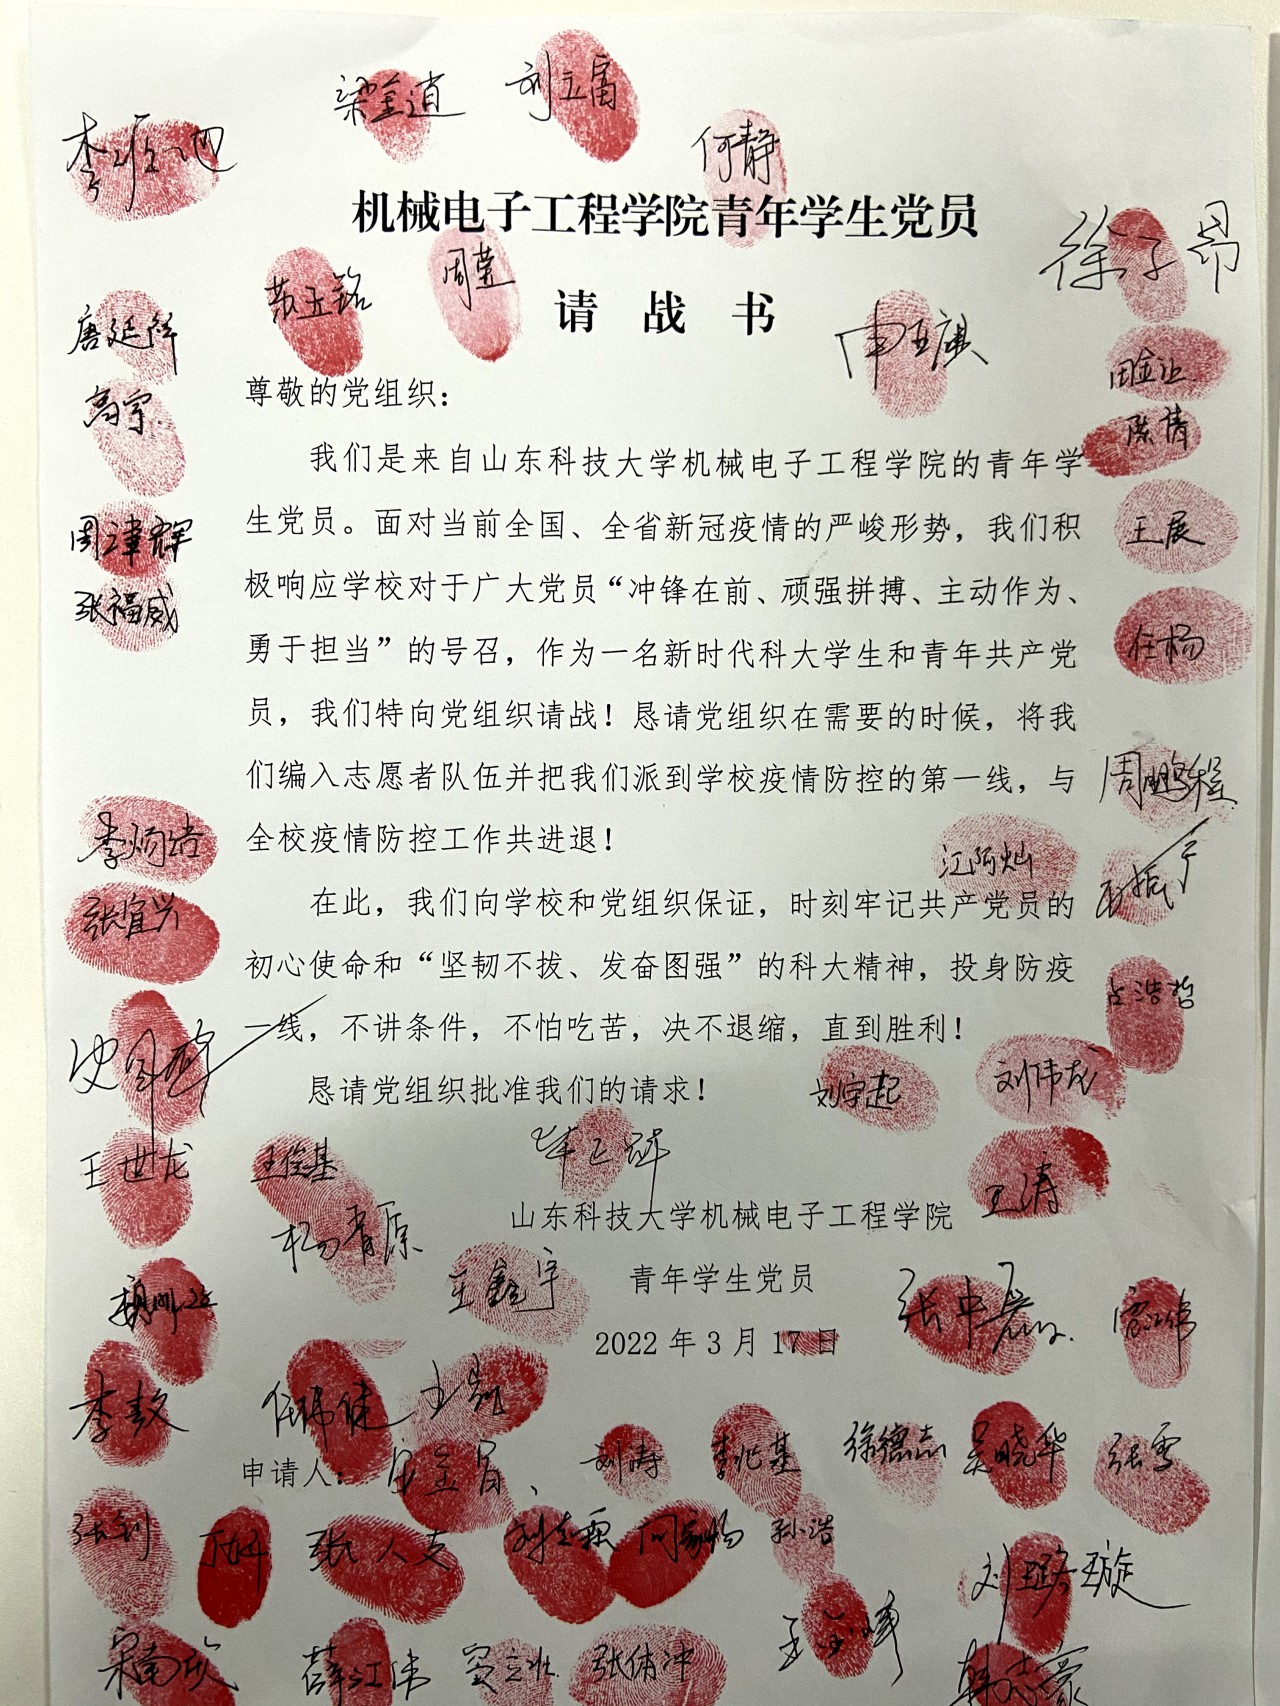 梁金逍 刘立富
何静
机械电子工程学院青年学生党员
徐子昂
苏玉铭 周萱
请 战 书
唐延锋
田金让
尊敬的党组织：
高宇
陈倩
我们是来自山东科技大学机械电子工程学院的青年学
生党员。面对当前全国、全省新冠疫情的严峻形势，我们积
王展
周津辉
极响应学校对于广大党员“冲锋在前、顽强拼搏、主动作为、
张福威
勇于担当”的号召，作为一名新时代科大学生和青年共产党
任杨
员，我们特向党组织请战！恳请党组织在需要的时候，将我
们编入志愿者队伍并把我们派到学校疫情防控的第一线，与
周鹏程
全校疫情防控工作共进退！
江阿灿
在此，我们向学校和党组织保证，时刻牢记共产党员的
张宜兴
初心使命和“坚韧不拔、发奋图强”的科大精神，投身防疫
占浩哲
一线，不讲条件，不怕吃苦，决不退缩，直到胜利！
恳请党组织批准我们的请求！
刘宇起 刘伟龙
王世龙 王俊基
王涛
山东科技大学机械电子工程学院
杨青原
王鑫宇
青年学生党员
2022 年 3 月 17 日
李敖 任伟健
申请人：
刘涛 李兆基 徐德志 吴晓华 张雪
张钊 孙浩
刘璐璇
薛江伟 张伟冲
韩志豪